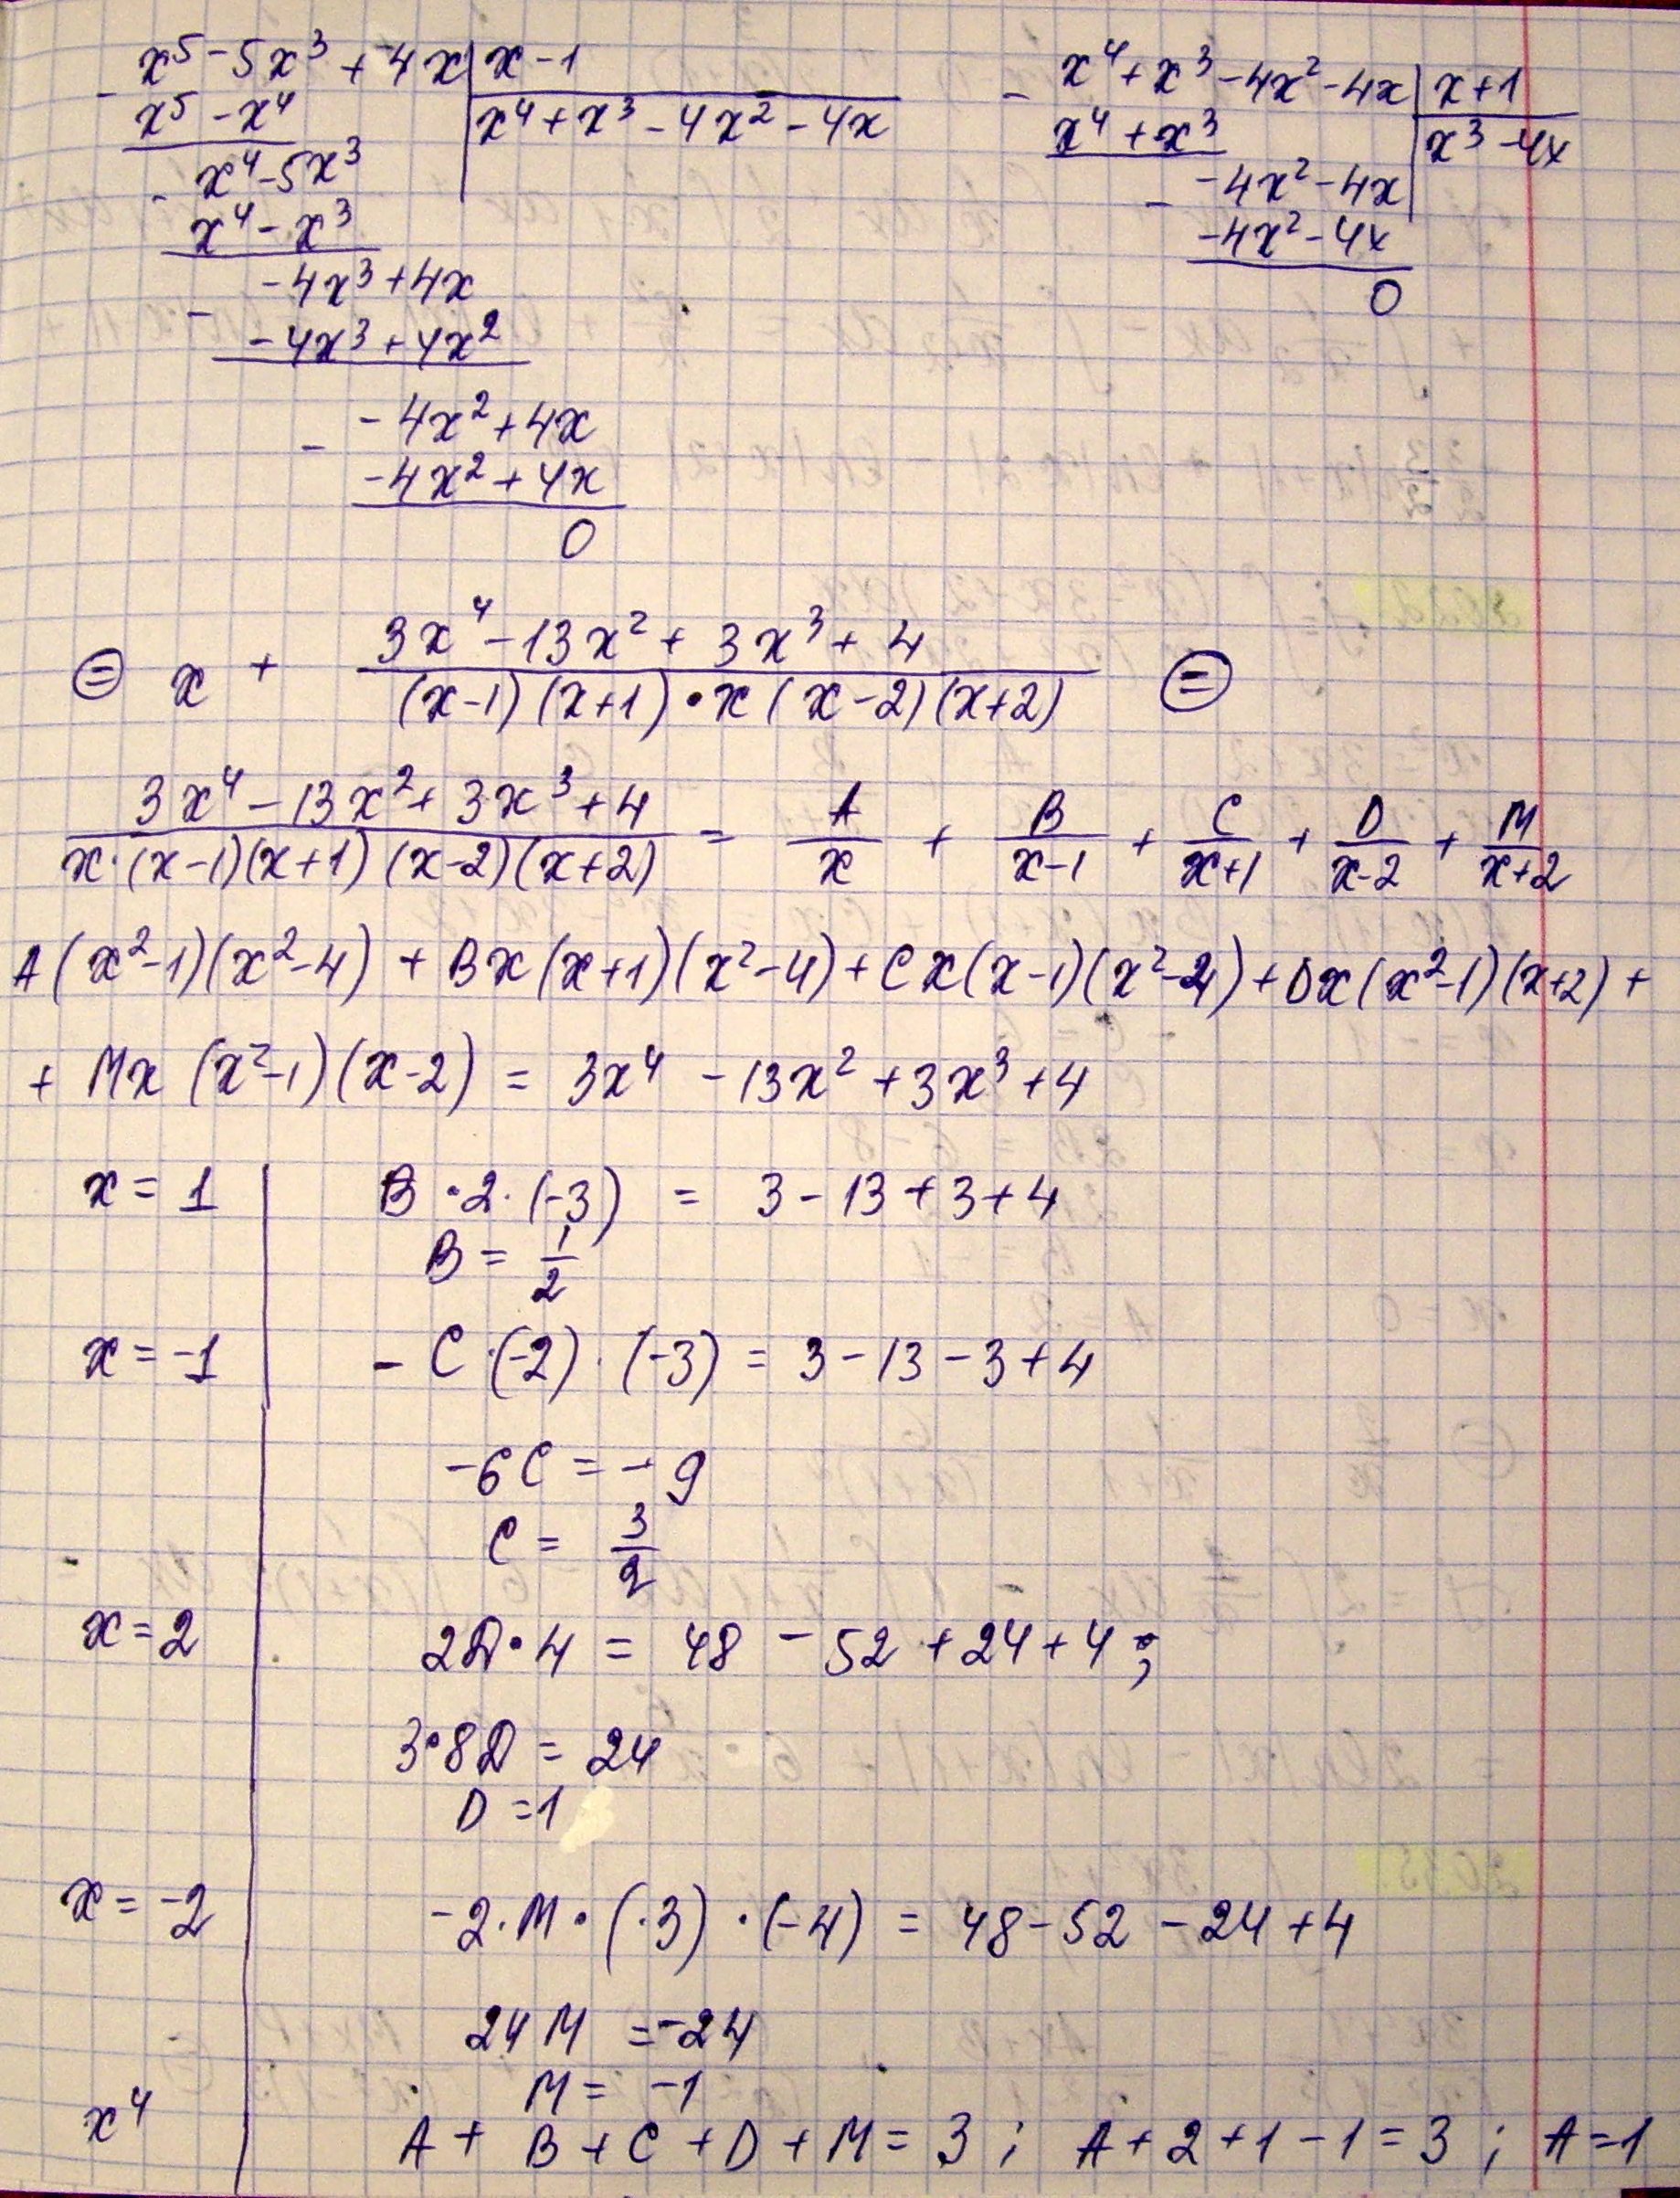 x⁵ - 5x³ + 4x | x - 1
x⁵ - x⁴ | x⁴ + x³ - 4x² - 4x
- x⁴ - 5x³
x⁴ - x³
- -4x³ + 4x
-4x³ + 4x²
- -4x² + 4x
-4x² + 4x
0
- x⁴ + x³ - 4x² - 4x | x + 1
x⁴ + x³ | x³ - 4x
- -4x² - 4x
-4x² - 4x
0
⊜ x + (3x⁴ - 13x² + 3x³ + 4) / ((x-1)(x+1)·x(x-2)(x+2)) ⊜
(3x⁴ - 13x² + 3x³ + 4) / (x·(x-1)(x+1)(x-2)(x+2)) = A/x + B/(x-1) + C/(x+1) + D/(x-2) + M/(x+2)
A(x²-1)(x²-4) + Bx(x+1)(x²-4) + Cx(x-1)(x²-4) + Dx(x²-1)(x+2) +
+ Mx(x²-1)(x-2) = 3x⁴ - 13x² + 3x³ + 4
x = 1 | B·2·(-3) = 3 - 13 + 3 + 4
B = 1/2
x = -1 | - C·(-2)·(-3) = 3 - 13 - 3 + 4
-6C = -9
C = 3/2
x = 2 | 2D·4 = 48 - 52 + 24 + 4;
3·8D = 24
D = 1
x = -2 | -2·M·(·3)·(-4) = 48 - 52 - 24 + 4
24M = -24
M = -1
x⁴ | A + B + C + D + M = 3; A + 2 + 1 - 1 = 3; A = 1